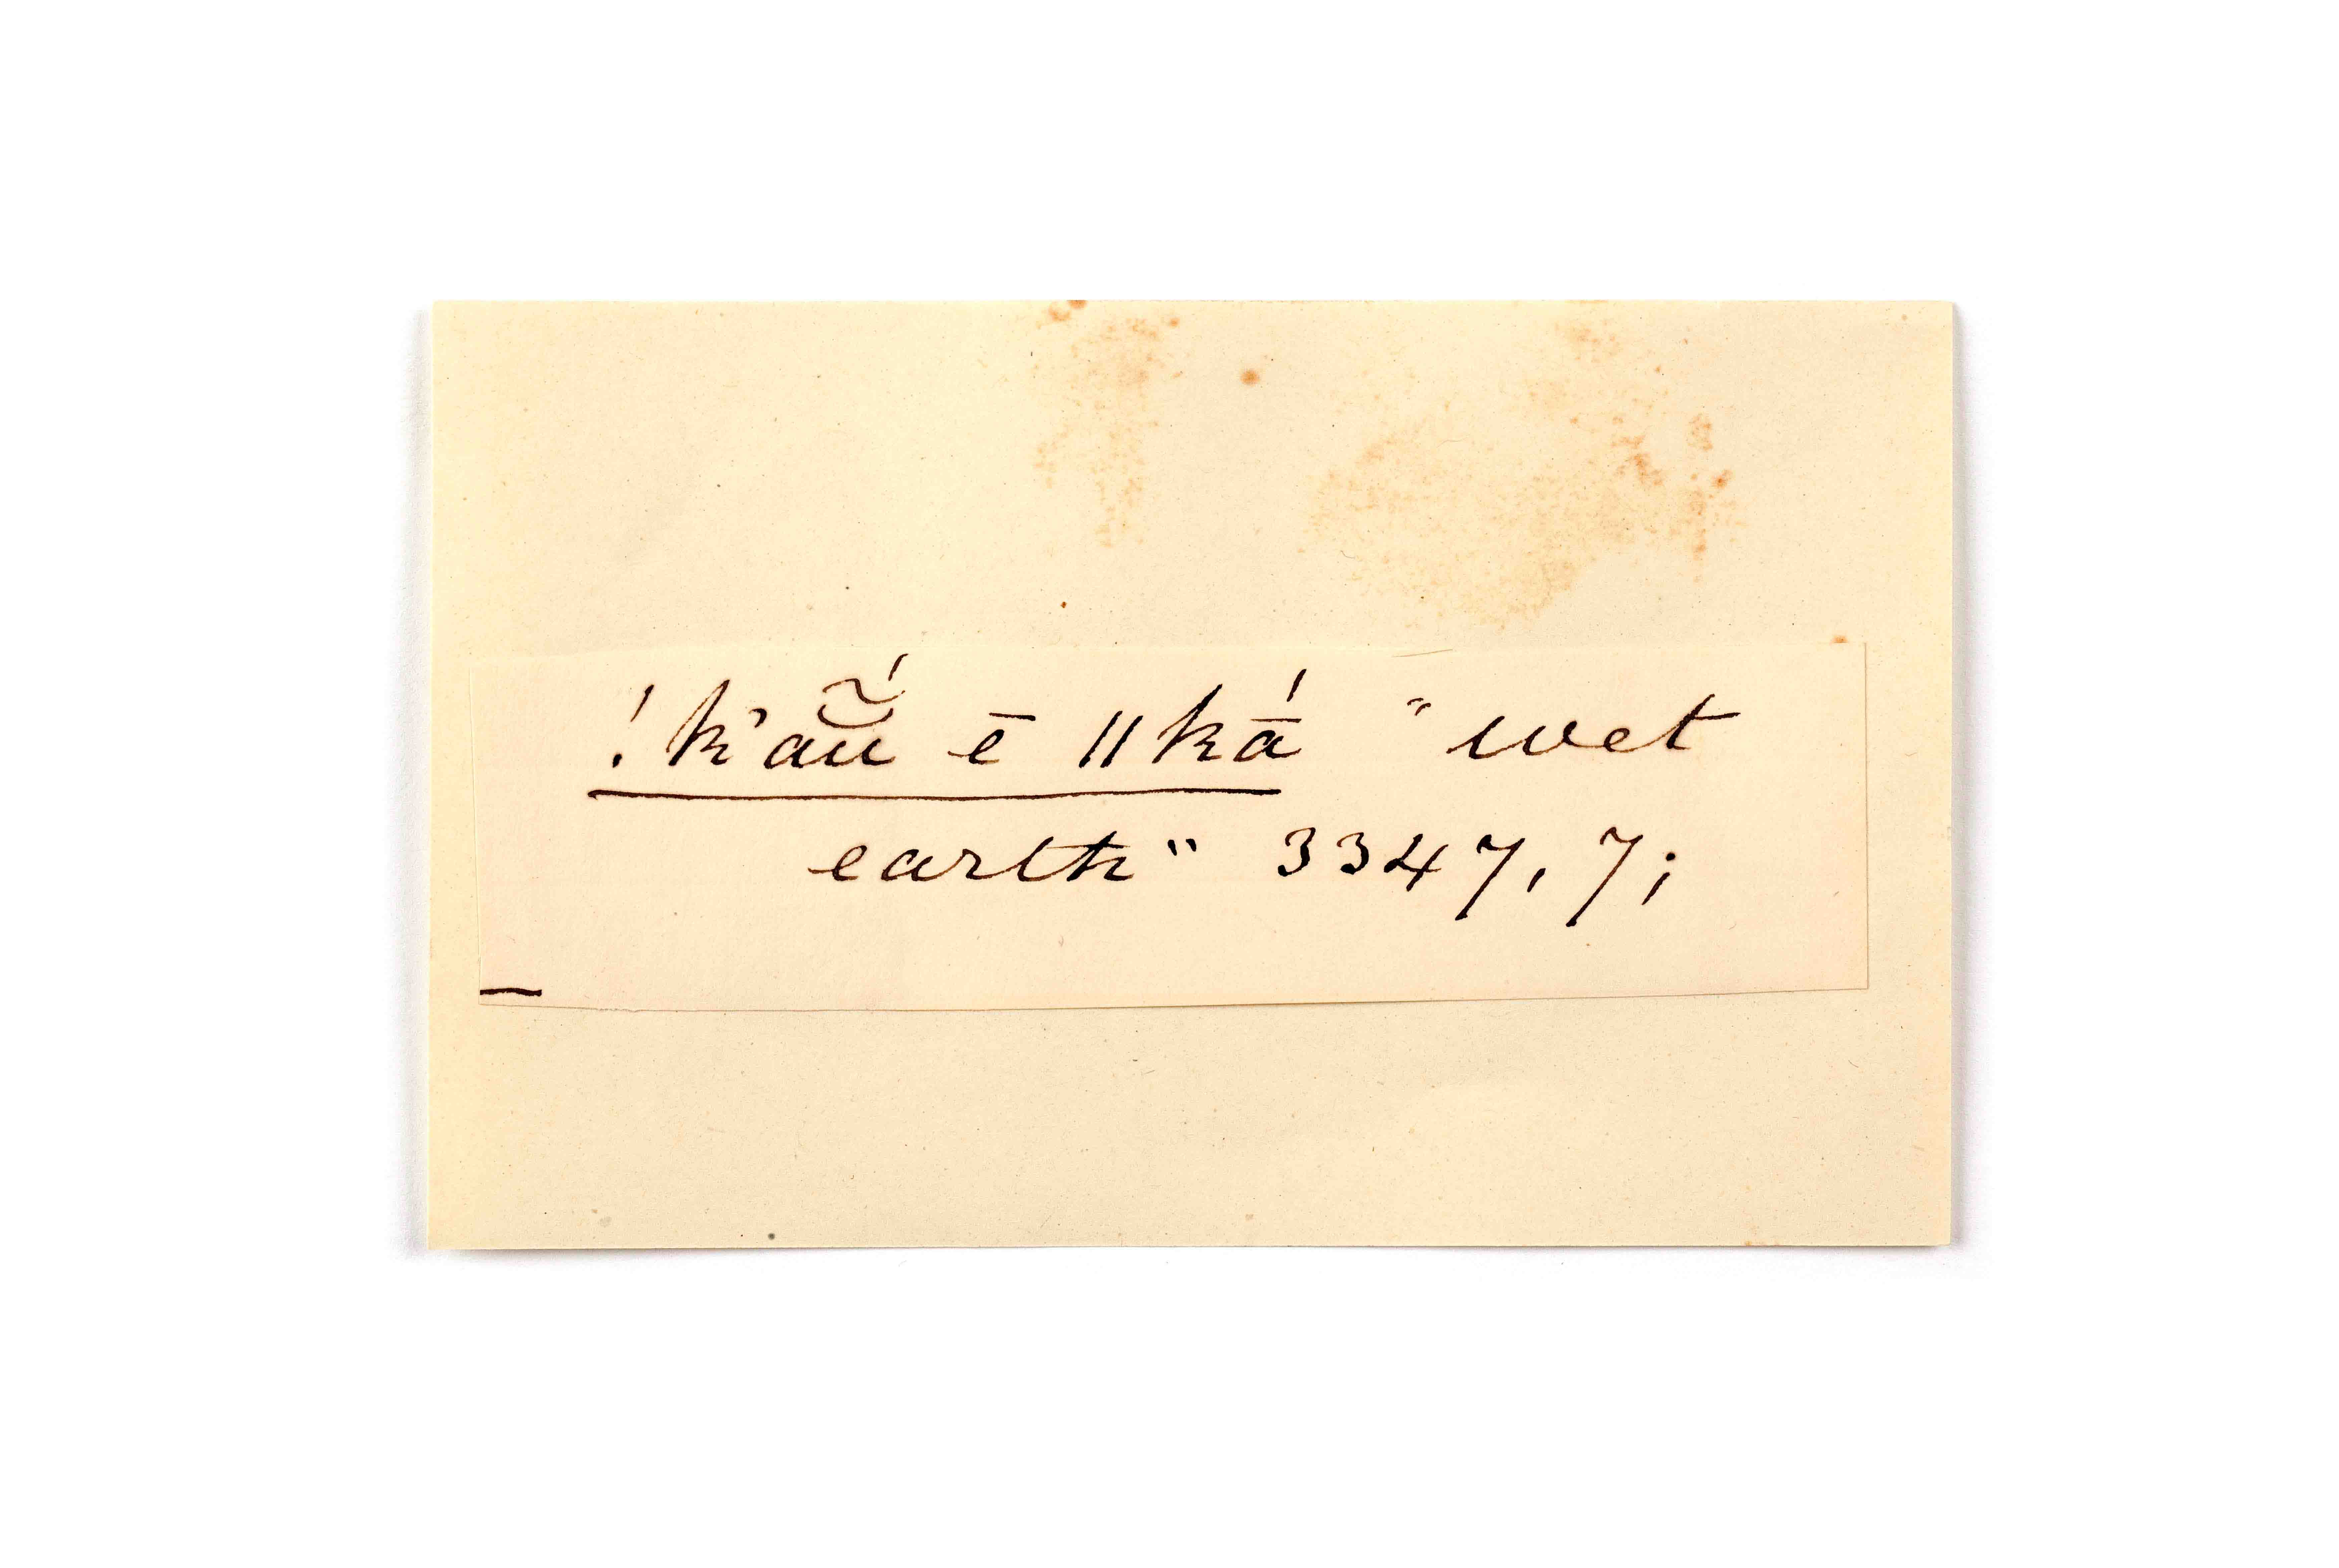 !k’aŭ̃́ ē ǁkā́ "wet
earth" 3347, 7;